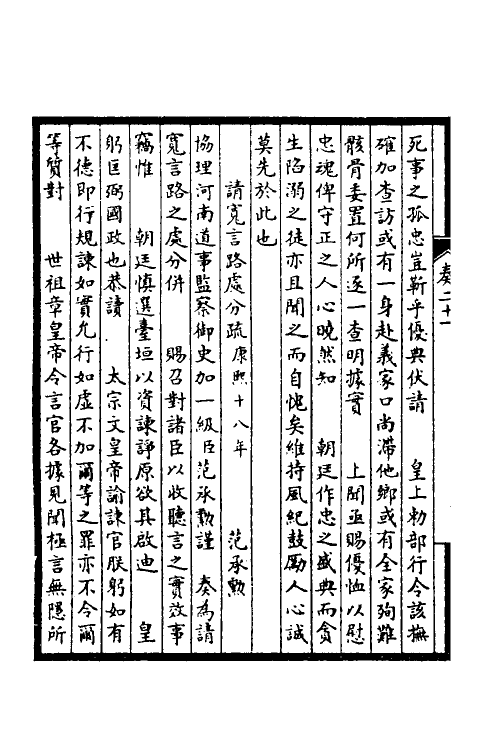 死事之孤忠豈靳乎優典伏請　皇上勅部行令該撫
確加查訪或有一身赴義家口尚滯他鄉或有全家殉難
骸骨委置何所逐一查明據實　上聞亟賜優恤以慰
忠魂俾守正之人心曉然知　朝廷作忠之盛典而貪
生陷溺之徒亦且聞之而自愧矣維持風紀鼓勵人心誠
莫先於此也
請寬言路處分疏康熙十八年　范承勲
協理河南道事監察御史加一級臣范承勲謹　奏為請
寬言路之處分併　賜召對諸臣以收聽言之實效事
竊惟　朝廷慎選臺垣以資諫諍原欲其啟迪　皇
躬匡弼國政也恭讀　太宗文皇帝諭諫官朕躬如有
不德即行規諫如實允行如虛不加爾等之罪亦不令爾
等質對　世祖章皇帝令言官各據見聞極言無隱所
奏二十一